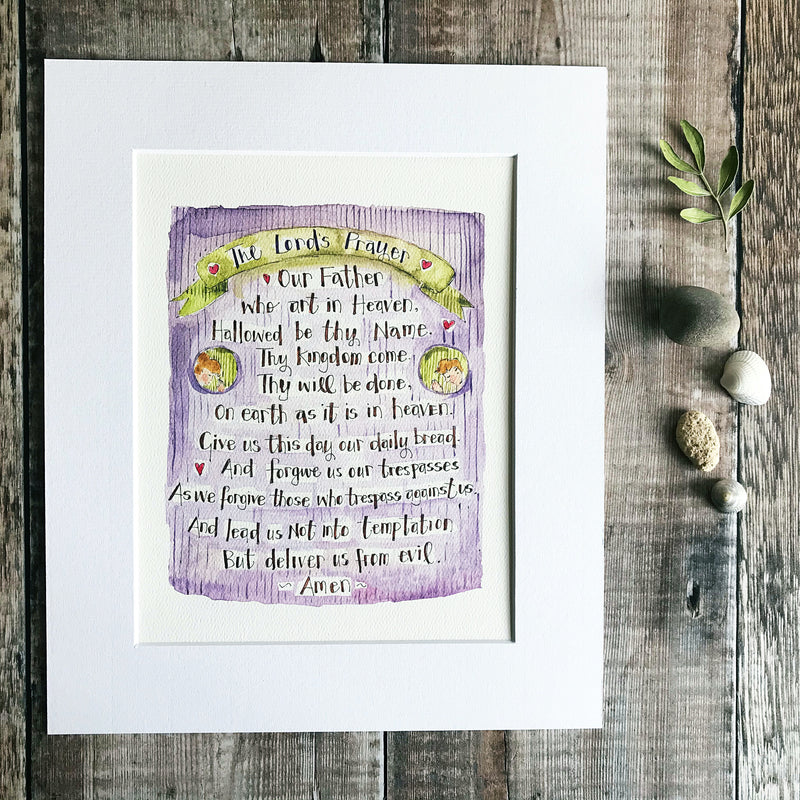 The Lord's Prayer
Our Father
who art in Heaven,
Hallowed be thy Name.
Thy kingdom come.
Thy will be done,
On earth as it is in heaven.
Give us this day our daily bread.
And forgive us our trespasses
As we forgive those who trespass against us.
And lead us Not into temptation
But deliver us from evil.
~ Amen ~